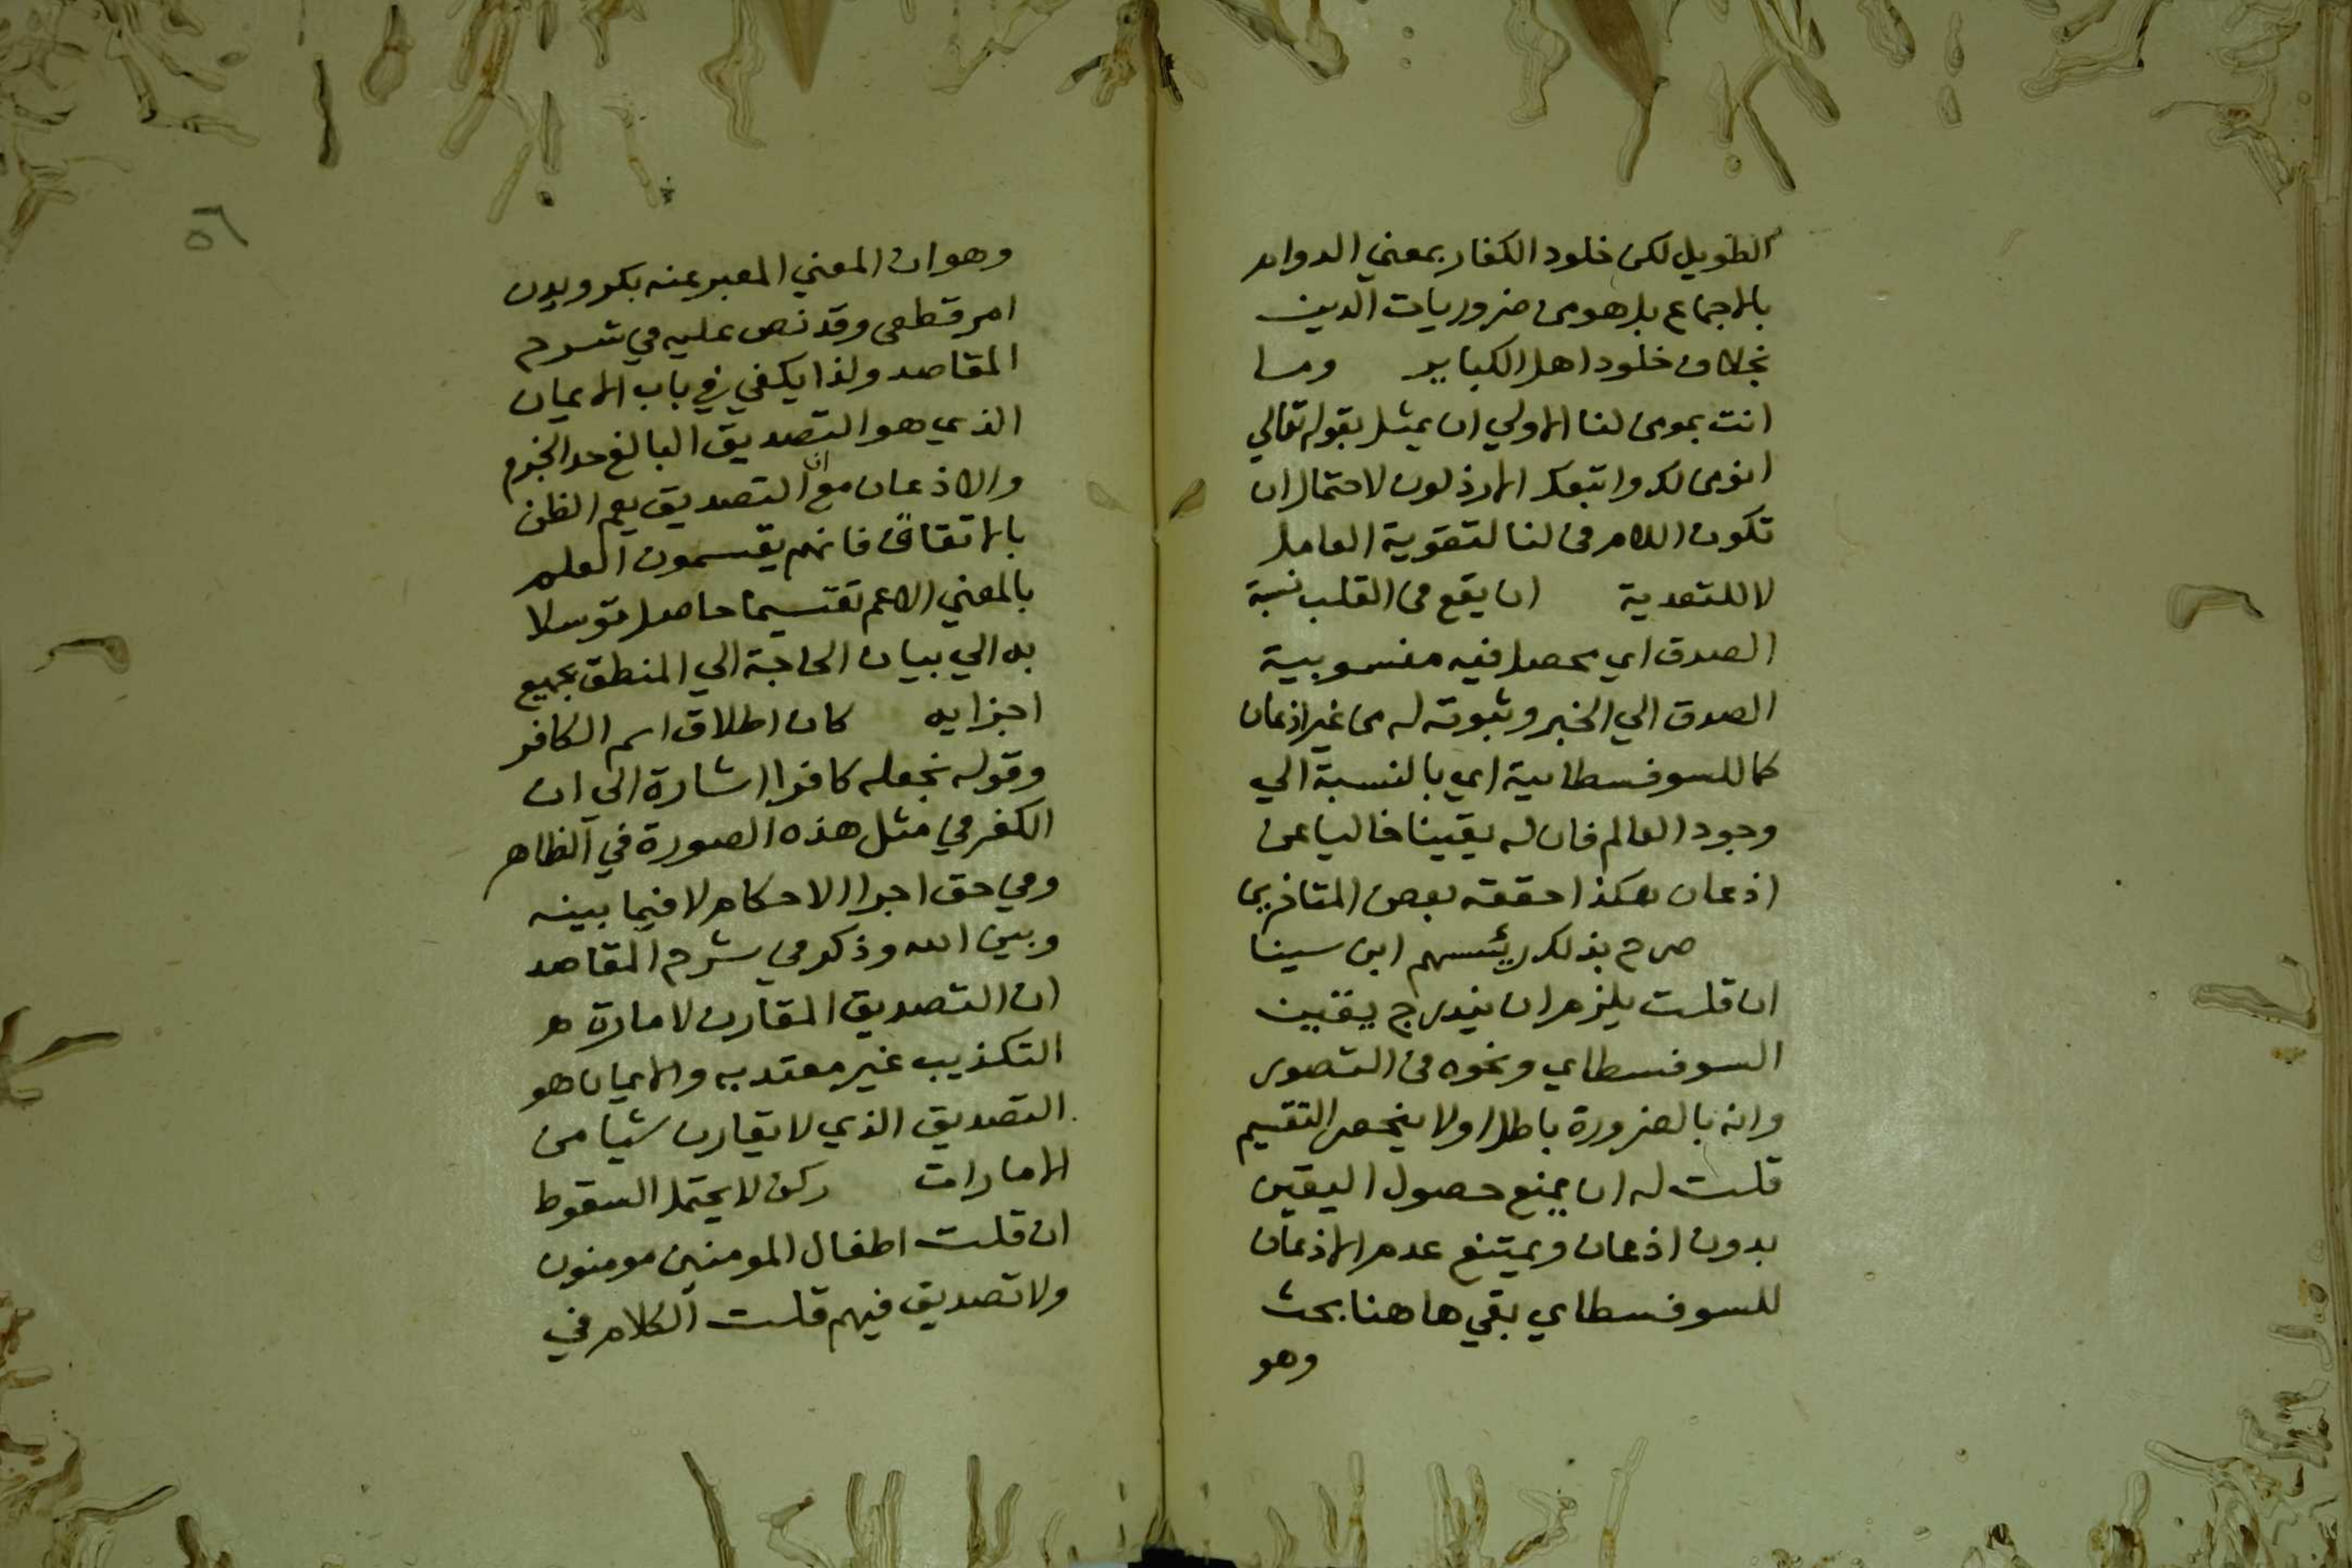 الطويل لكن خلود الكفار بمعني الدوام
بالاجماع بل هو من ضروريات الدين
بخلاف خلود اهل الكباير وما
انت بمومن لنا الاولي ان يمثل بقوله تعالي
انومن لك واتبعك الارذلون لاحتمال ان
تكون اللام في لنا لتقوية العامل
لا للتعدية ان يقع في القلب نسبة
الصدق اي يحصل فيه منسوبية
الصدق الي الخبر وثبوته له من غير اذعان
كما للسوفسطائية اي بالنسبة الي
وجود العالم فان له يقينا خاليا عن
اذعان هكذا حققه بعض المتاخرين
صرح بذلك رئيسهم ابن سينا
ان قلت يلزم ان يندرج يقين
السوفسطاي ونحوه في التصور
وانه بالضرورة باطل اولا ينحصر التقسيم
قلت له ان يمنع حصول اليقين
بدون اذعان ويمتنع عدم الاذعان
للسوفسطاي بقي هاهنا بحث
وهو
٥٦
وهو ان المعني المعبر عنه بكرويدن
امر قطعي وقد نص عليه في شرح
المقاصد ولذا يكفي في باب الايمان
الذي هو التصديق البالغ حد الجزم
والاذعان مع ان التصديق يعم الظن
بالاتفاق فانهم يقسمون العلم
بالمعني الاعم تقسيما حاصل توسلا
به الي بيان الحاجة الي المنطق بجميع
اجزايه كان اطلاق اسم الكافر
وقوله نجعله كافرا اشارة الي ان
الكفر في مثل هذه الصورة في الظاهر
وفي حق اجرا الاحكام لا فيما بينه
وبين الله وذكر في شرح المقاصد
ان التصديق المقارن لامارة
التكذيب غير معتد به والايمان هو
التصديق الذي لا يقارن شيا من
الامارات ركن لا يحتمل السقوط
ان قلت اطفال المومنين مومنون
ولا تصديق فيهم قلت الكلام في